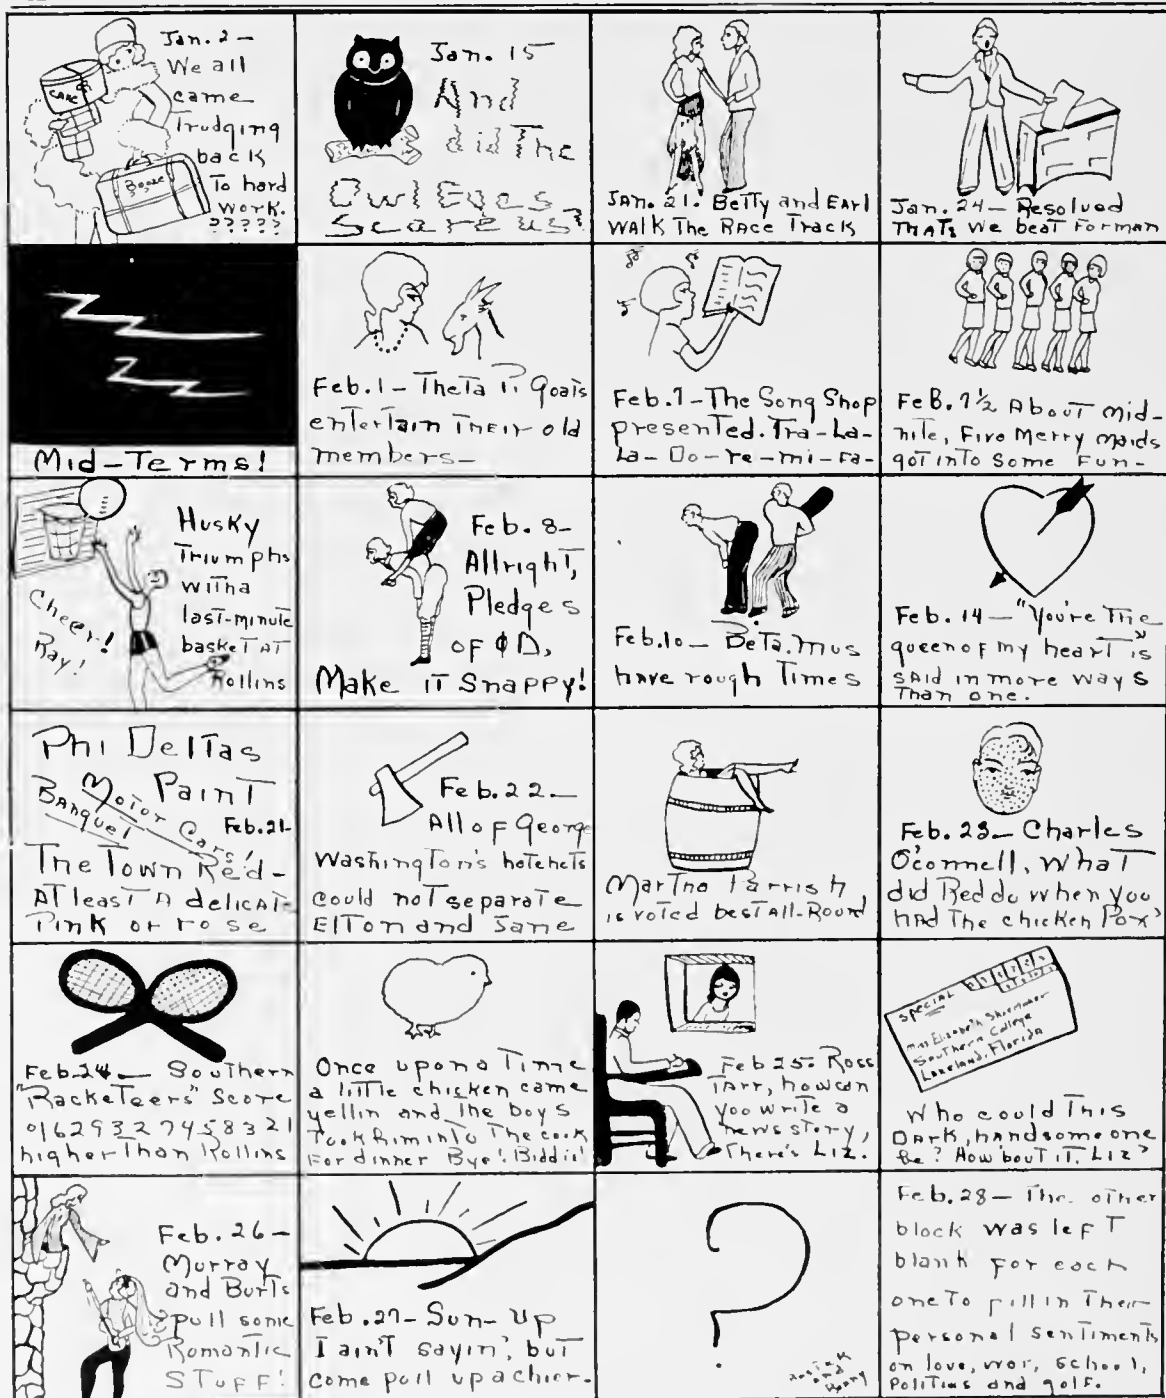 Jan. 2 —
We all
came
Trudging
back
To hard
work.
?????
CAKE
Booze
Jan. 15
And
did The
Owl Eyes
Scare us?
JAN. 21. Betty and Earl
WALK The RACE Track
Jan. 24 — Resolved
THATs We beat Forman
Mid-Terms!
Feb. 1 — Theta Pi Goats
entertain Their old
members —
Feb. 7 — The Song Shop
presented. Tra-La-
La-Do-re-mi-fa-
FeB. 7 ½ About mid-
nite, Five Merry maids
got into Some Fun —
Husky
Triumphs
with a
last-minute
basket AT
Rollins
Cheer!
Ray!
Feb. 8 —
Allright,
Pledges
of ΦD,
Make it Snappy!
Feb. 10 — Beta. Mus
have rough Times
Feb. 14 — "You're The
queen of my heart" is
said in more ways
Than one.
Phi Deltas
Paint
Banquet
Motor Cars!
Feb. 21 —
The Town Red —
At least A delicate
Pink or rose
Feb. 22 —
All of George
Washington's hatchets
could not separate
Elton and Jane
Martha Parrish
is voted best All-Round
Feb. 23 — Charles
O'connell, what
did Red do when you
had The chicken Pox?
Feb. 24 — Southern
"Racketeers" Score
01629327458321
higher Than Rollins
Once upon a Time
a little chicken came
yellin and the boys
Took him into The cook
For dinner Bye! Biddie!
Feb 25. Ross
Tarr, how can
you write a
news story,
There's Liz.
Special
Miss Elizabeth Shoemaker
Southern College
Lakeland, Florida
Who could This
Dark, handsome one
be? How 'bout iT. Liz?
Feb. 26 —
Murray
and Burts
pull some
Romantic
STuFF!
Feb. 27 — Sun-Up
I ain't sayin', but
come pull up a chier.
?
and
Henry
Feb. 28 — The other
block was left
blank for each
one To fill in Their
personal sentiments
on love, war, school,
Politics and golf.